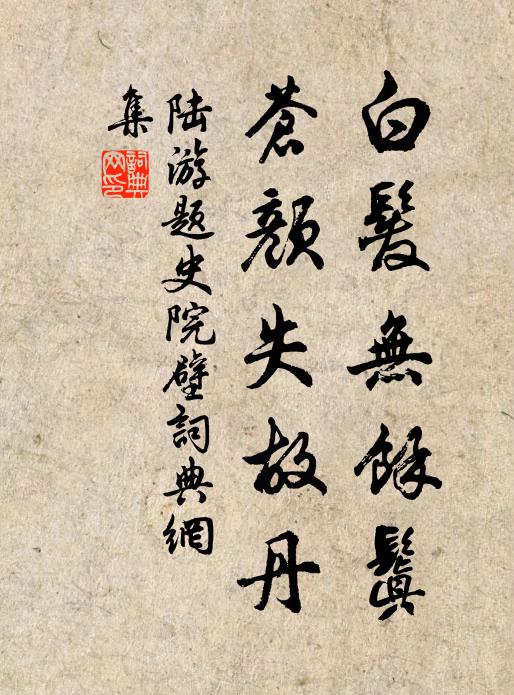 白髮無餘鬒
蒼顏失故丹
陆游题史院壁詞典網
集
詞典
网印